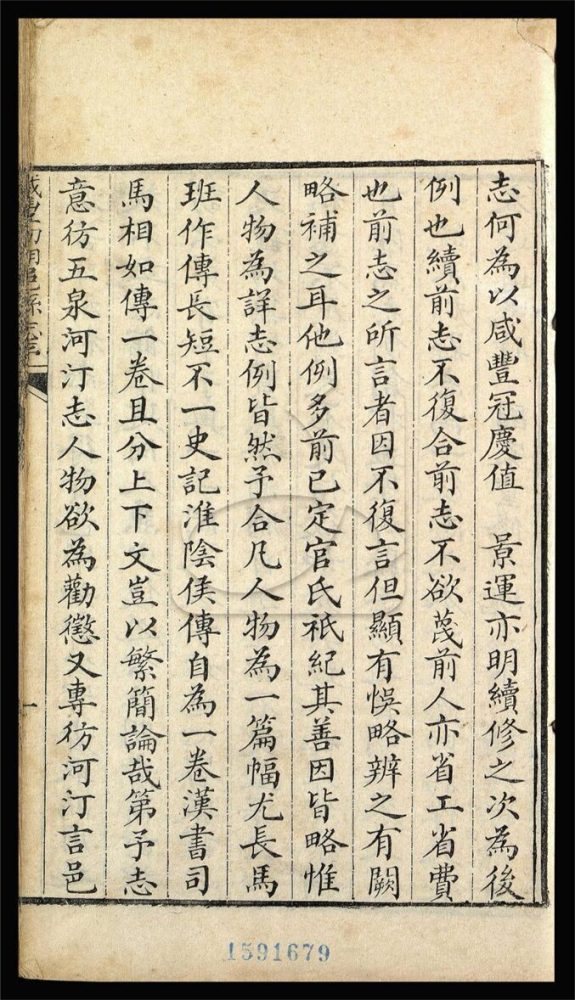 志何為以咸豐冠慶值　景運亦明續修之次為後
例也續前志不復合前志不欲蔑前人亦省工省費
也前志之所言者因不復言但顯有悞略辨之有闕
略補之耳他例多前已定官氏衹紀其善因皆略惟
人物為詳志例皆然予合凡人物為一篇幅尤長馬
班作傳長短不一史記淮陰侯傳自為一卷漢書司
馬相如傳一卷且分上下文豈以繁簡論哉第予志
意彷五泉河汀志人物欲為勸懲又專彷河汀言邑
一
1591679